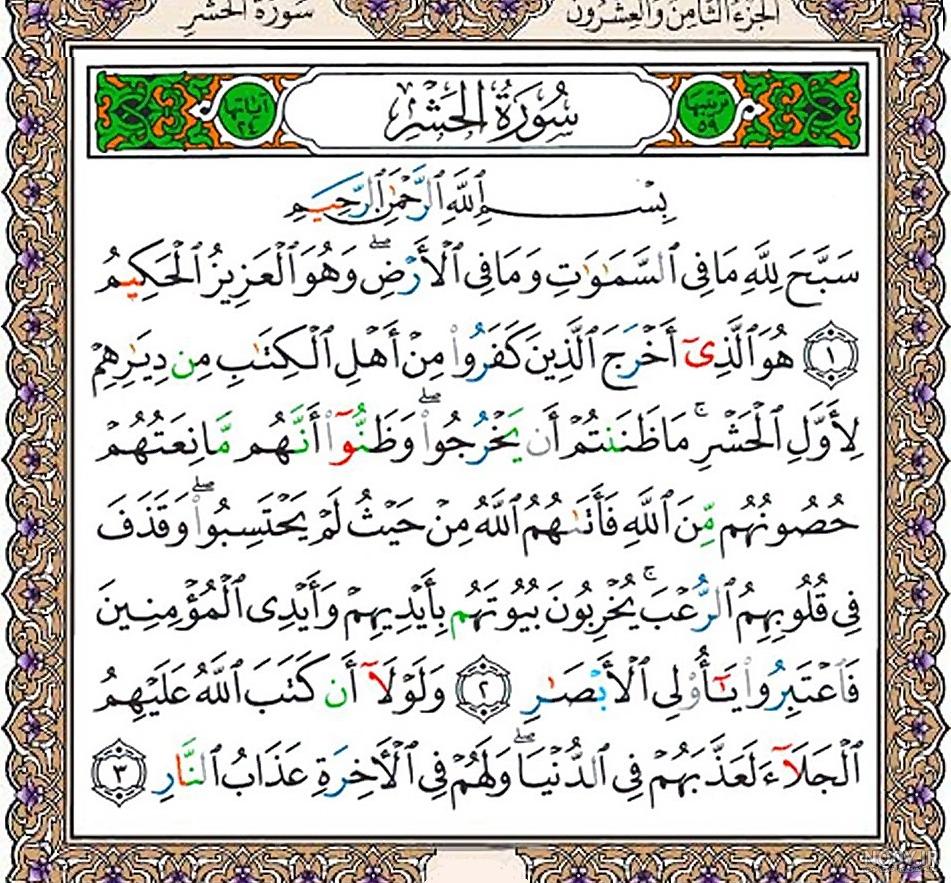 سورة الحشر الجزء الثامن والعشرون
ترتيبها ٥٩ سُورَةُ الحَشْرِ آياتها ٢٤
بِسْمِ ٱللَّهِ ٱلرَّحْمَٰنِ ٱلرَّحِيمِ
سَبَّحَ لِلَّهِ مَا فِى ٱلسَّمَٰوَٰتِ وَمَا فِى ٱلْأَرْضِ ۖ وَهُوَ ٱلْعَزِيزُ ٱلْحَكِيمُ
١ هُوَ ٱلَّذِىٓ أَخْرَجَ ٱلَّذِينَ كَفَرُوا۟ مِنْ أَهْلِ ٱلْكِتَٰبِ مِن دِيَٰرِهِمْ
لِأَوَّلِ ٱلْحَشْرِ ۚ مَا ظَنَنتُمْ أَن يَخْرُجُوا۟ ۖ وَظَنُّوٓا۟ أَنَّهُم مَّانِعَتُهُمْ
حُصُونُهُم مِّنَ ٱللَّهِ فَأَتَىٰهُمُ ٱللَّهُ مِنْ حَيْثُ لَمْ يَحْتَسِبُوا۟ ۖ وَقَذَفَ
فِى قُلُوبِهِمُ ٱلرُّعْبَ ۚ يُخْرِبُونَ بُيُوتَهُم بِأَيْدِيهِمْ وَأَيْدِى ٱلْمُؤْمِنِينَ
فَٱعْتَبِرُوا۟ يَٰٓأُو۟لِى ٱلْأَبْصَٰرِ ٢ وَلَوْلَآ أَن كَتَبَ ٱللَّهُ عَلَيْهِمُ
ٱلْجَلَآءَ لَعَذَّبَهُمْ فِى ٱلدُّنْيَا ۖ وَلَهُمْ فِى ٱلْـَٔاخِرَةِ عَذَابُ ٱلنَّارِ ٣